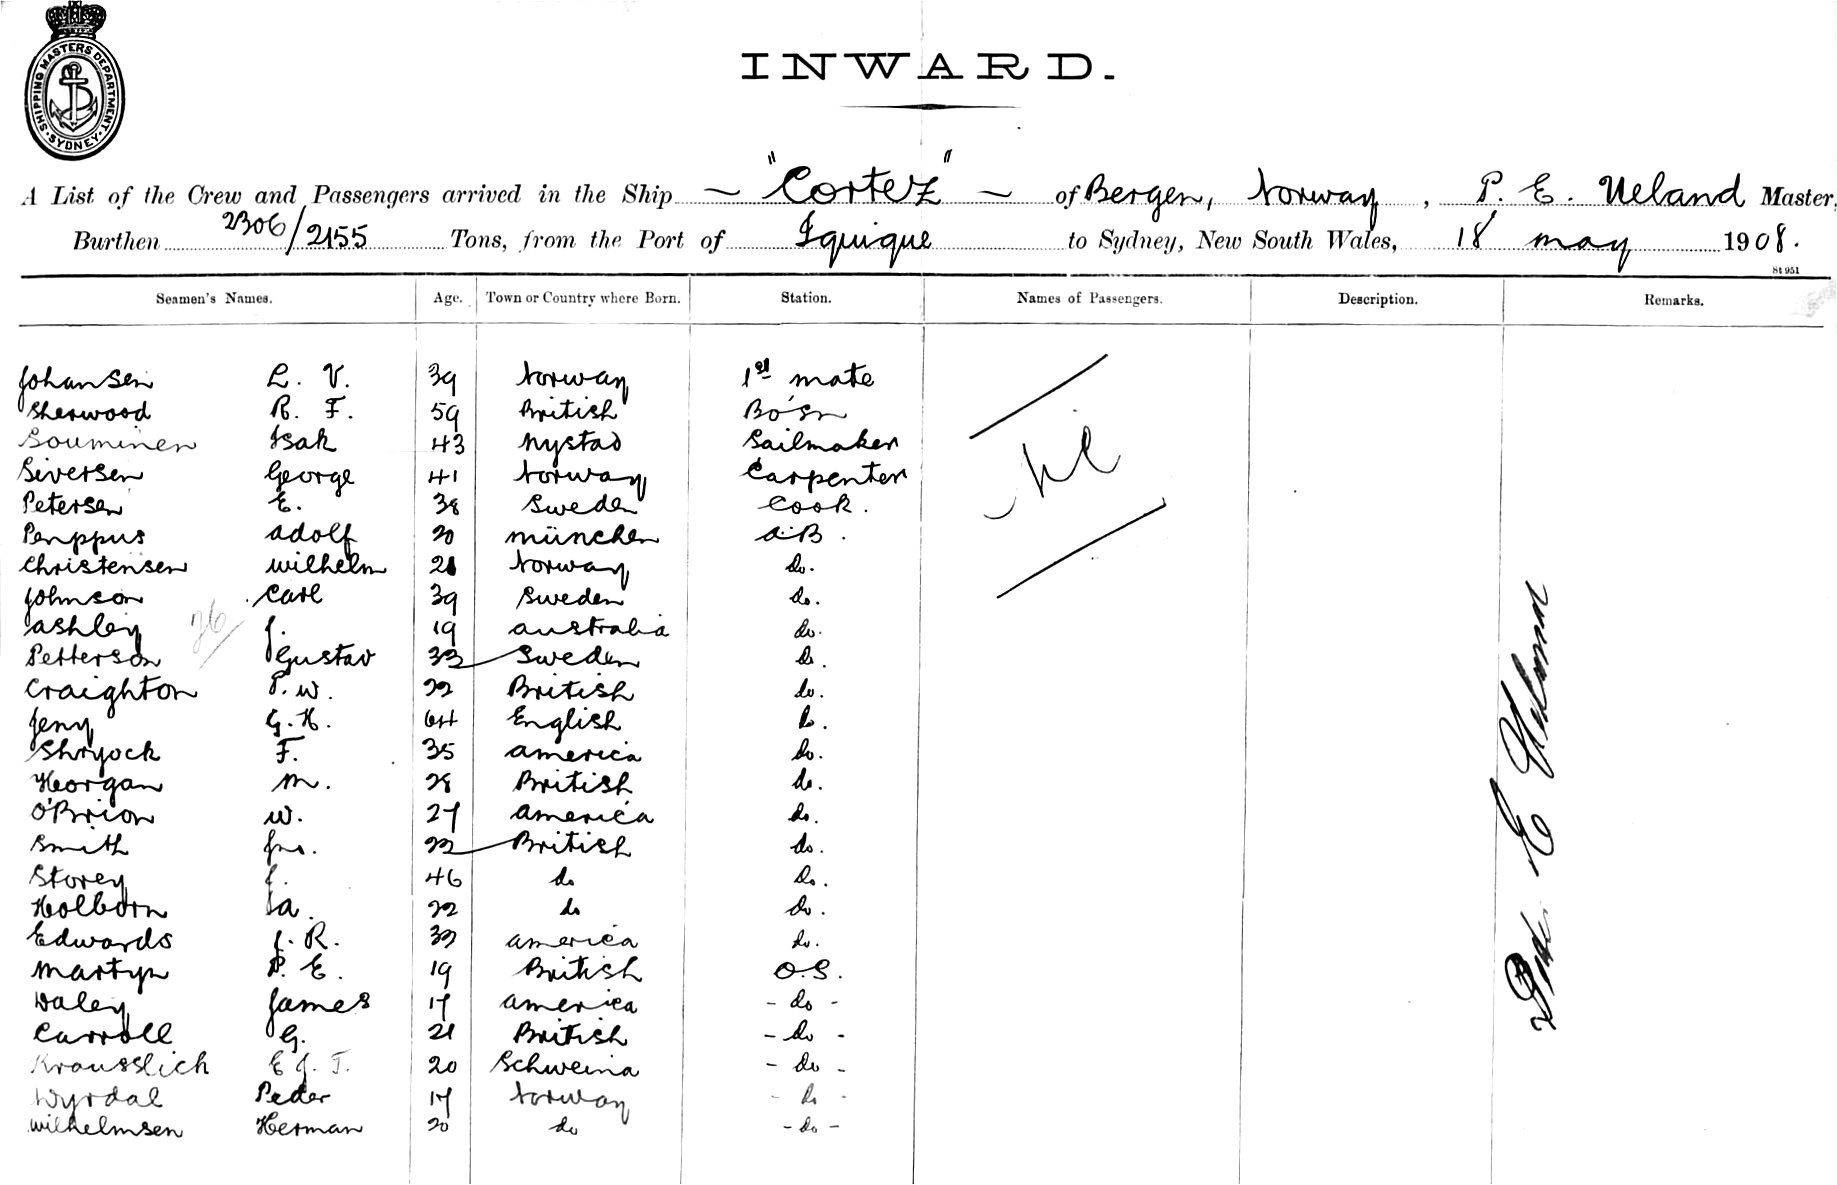 SHIPPING MASTERS DEPARTMENT. SYDNEY.
INWARD.
A List of the Crew and Passengers arrived in the Ship "Cortez" of Bergen, Norway, P. E. Ueland Master,
Burthen 2306/2155 Tons, from the Port of Iquique to Sydney, New South Wales, 18 May 1908.
St 951
Seamen's Names. Age. Town or Country where Born. Station. Names of Passengers. Description. Remarks.
Johansen L. V. 39 Norway 1st mate
Sherwood R. F. 59 British Bo'sn
Souminen Isak 43 Nystad Sailmaker
Siversen George 41 Norway Carpenter
Nil
Petersen E. 38 Sweden Cook.
Penppus Adolf 20 München A.B.
Christensen Wilhelm 21 Norway do.
Johnson Carl 39 Sweden do.
Ashley J. 19 Australia do.
26
Petterson Gustav 33 Sweden do.
Craighton P. W. 22 British do.
Jeny G. H. 64 English do.
Shryock F. 35 America do.
Horgan M. 28 British do.
O'Brion W. 27 America do.
Smith Jno. 22 British do.
Storey J. 46 do do.
Holborn A. 22 do do.
Edwards J. R. 32 America do.
Martyn P. E. 19 British O.S.
Daley James 17 America - do -
Carroll G. 21 British - do -
Krausslich E J. T. 20 Schweina - do -
Wyrdal Peder 17 Norway - do -
Wilhelmsen Herman 20 do - do -
E Ueland